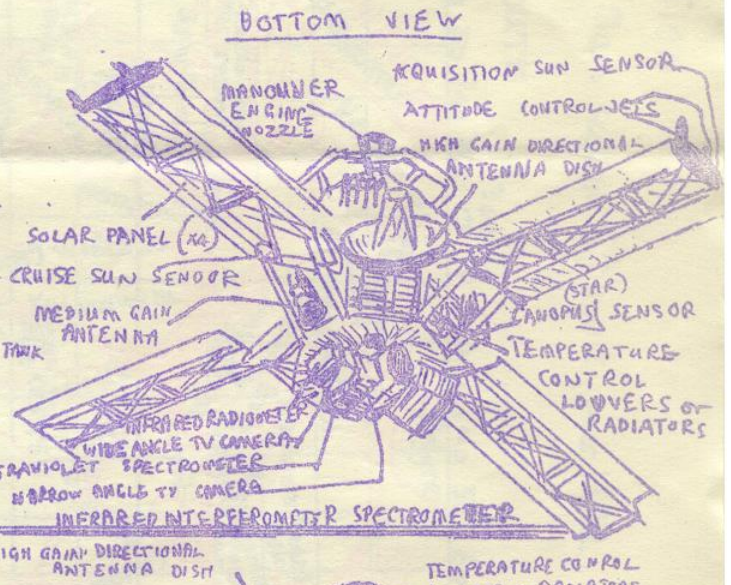 BOTTOM VIEW
ACQUISITION SUN SENSOR
MANOUVER
ENGINE
NOZZLE
ATTITUDE CONTROL JETS
HIGH GAIN DIRECTIONAL
ANTENNA DISH
SOLAR PANEL (x4)
CRUISE SUN SENSOR
MEDIUM GAIN
ANTENNA
TANK
(STAR)
CANOPUS SENSOR
TEMPERATURE
CONTROL
LOUVERS or
RADIATORS
INFRARED RADIOMETER
WIDE ANGLE TV CAMERA
TRAVIOLET SPECTROMETER
NARROW ANGLE TV CAMERA
INFRARED INTERFEROMETER SPECTROMETER
IGH GAIN DIRECTIONAL
ANTENNA DISH
TEMPERATURE CONROL